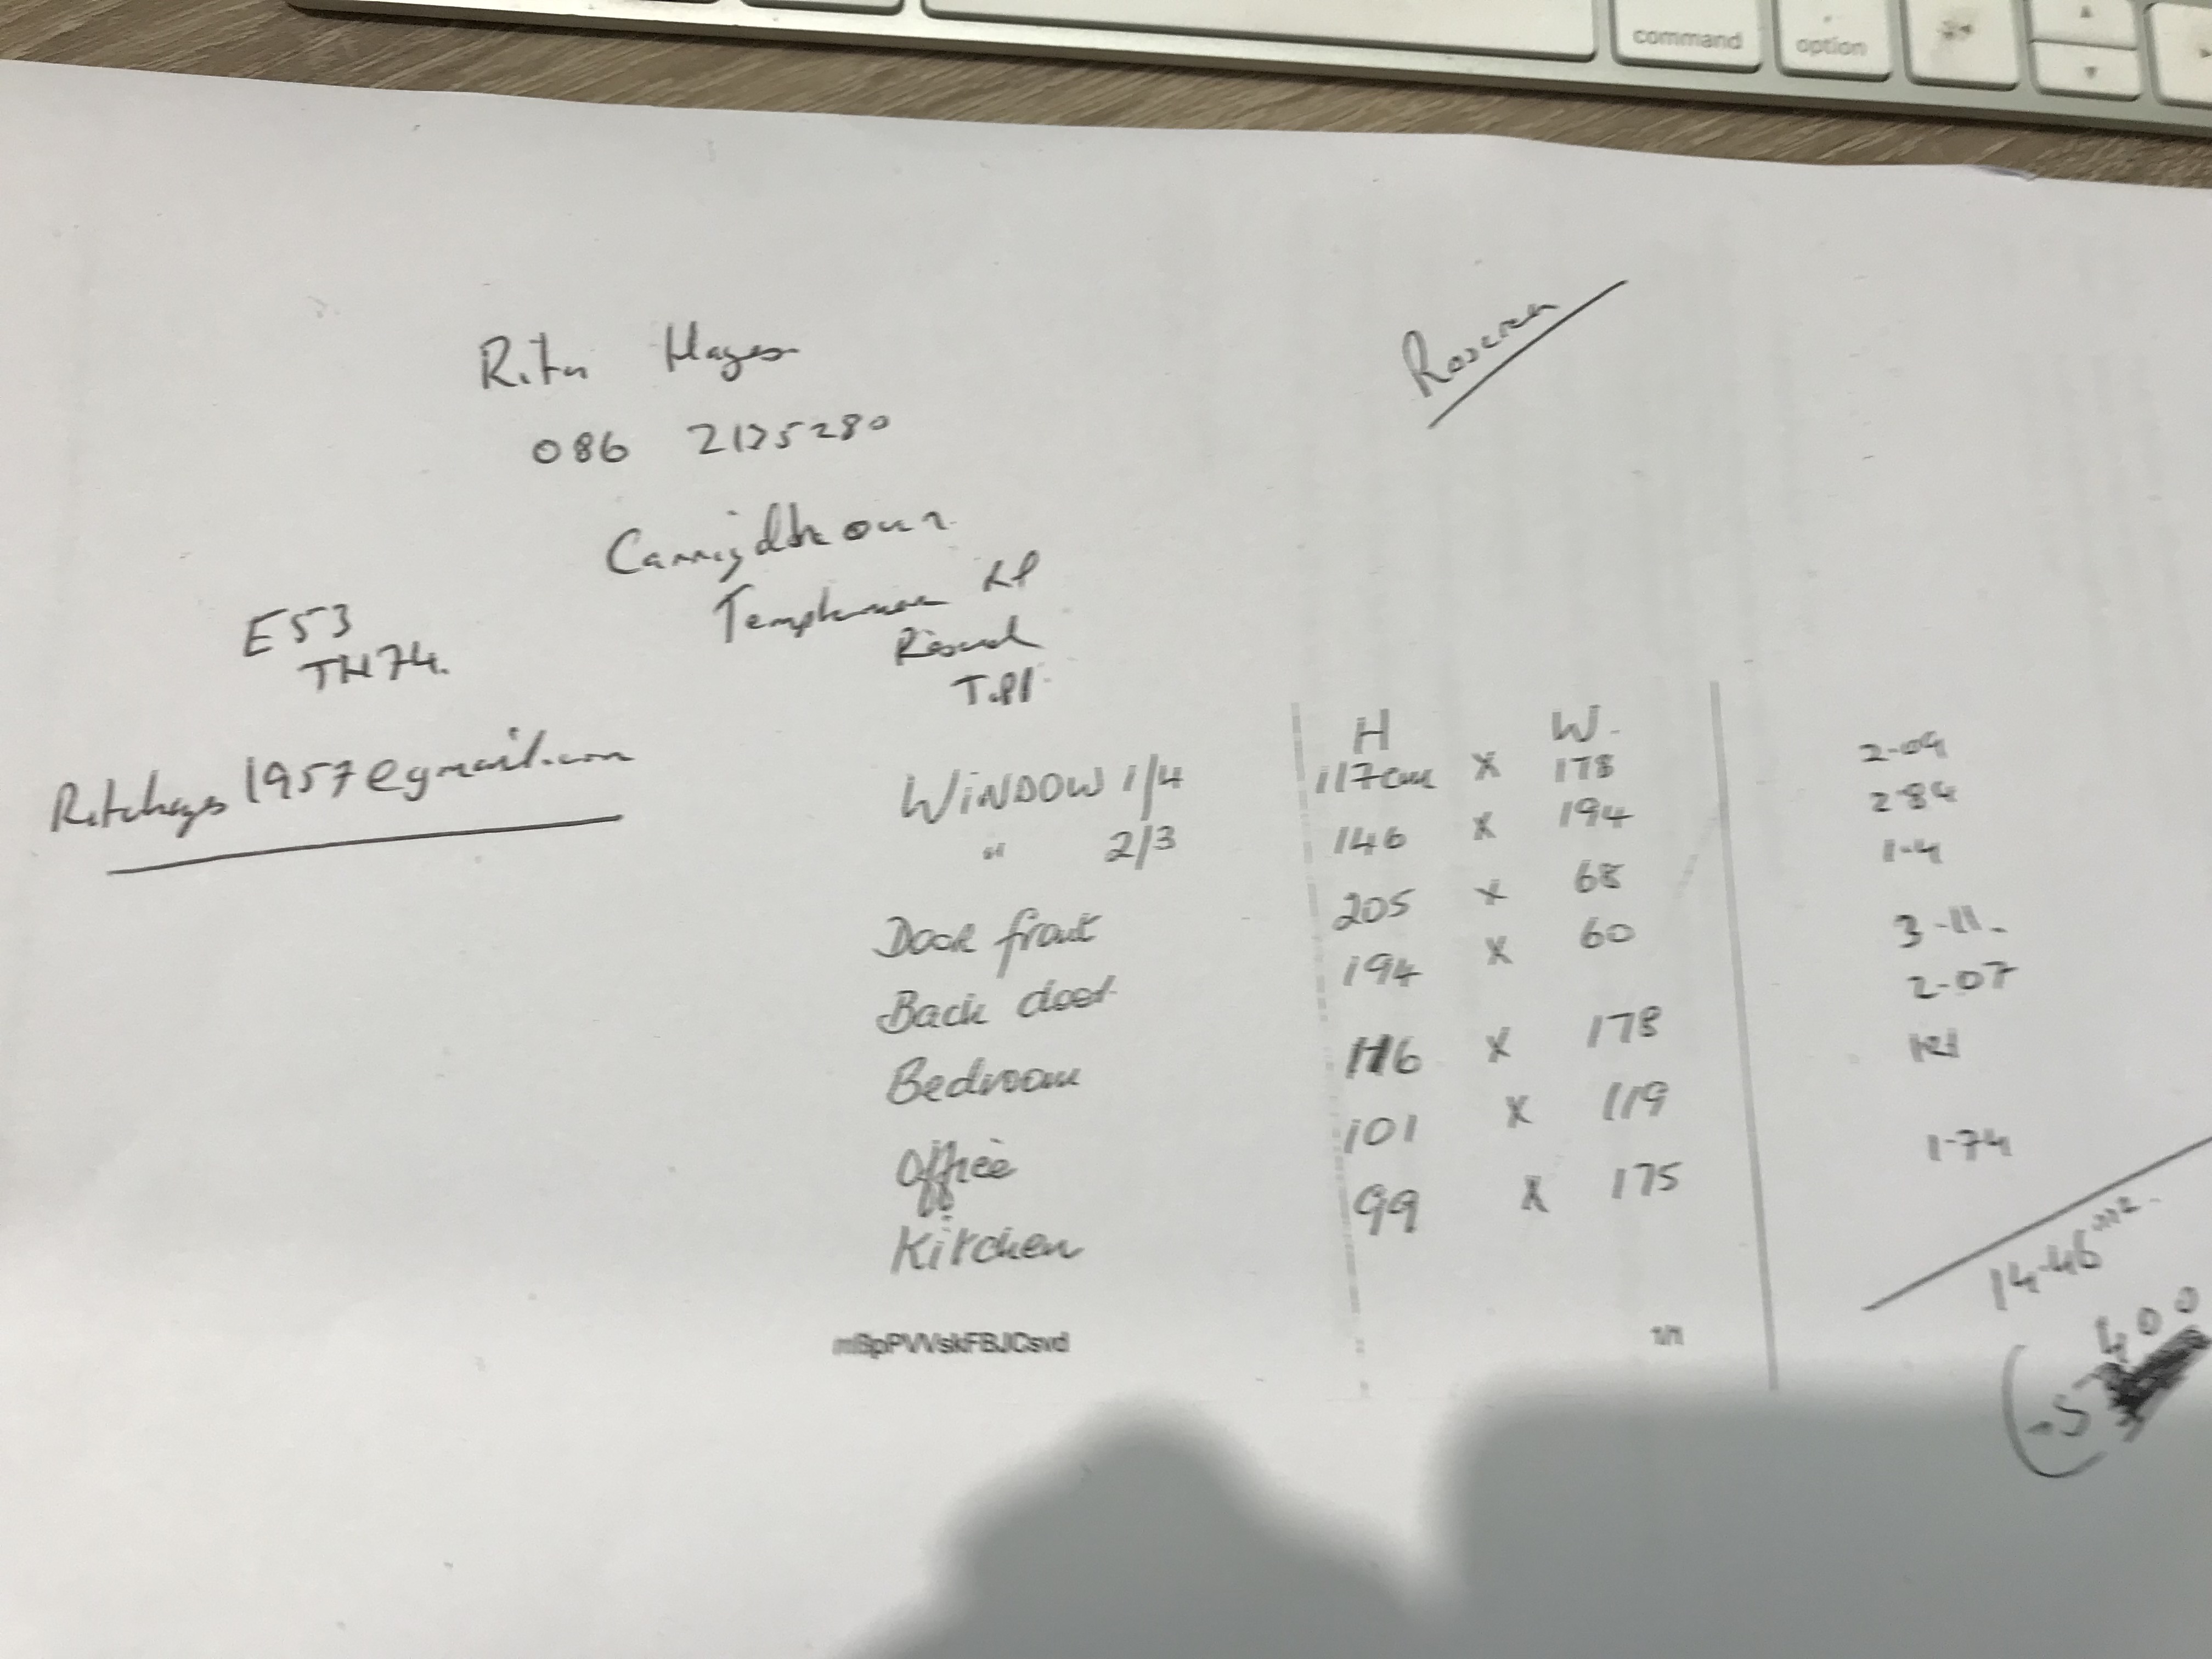 command option
Roscrea
Rita Hayes
086 2125280
Templemore Rd
E53
TH74.
Tipp
H W.
1957@gmail.com
WINDOW 1/4 117cm x 178 2.09
" 2/3 146 x 194 2.84
Door front 205 x 68 1.4
Back door 194 x 60
3.11.
Bedroom 116 x 178 2.07
Office 101 x 119 1.21
Kitchen 99 x 175 1.74
14.46 m2.
400
1/1